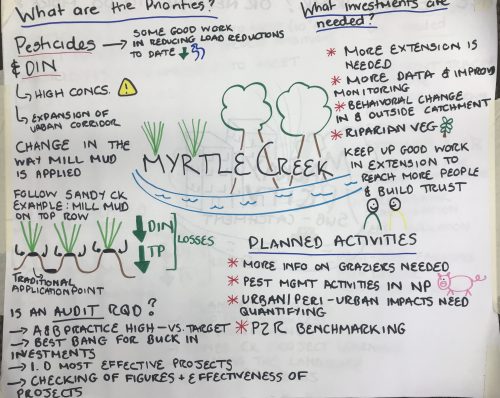 What are the Priorities?
Pesticides & DIN
→ SOME GOOD WORK
IN REDUCING LOAD REDUCTIONS
TO DATE
↳ HIGH CONCS. !
↳ EXPANSION OF
URBAN CORRIDOR
CHANGE IN THE
WAY MILL MUD
IS APPLIED
FOLLOW SANDY CK
EXAMPLE: MILL MUD
ON TOP ROW
DIN
TP
LOSSES
TRADITIONAL
APPLICATION POINT
IS AN AUDIT RQD?
→ A&B PRACTICE HIGH - VS. TARGET
→ BEST BANG FOR BUCK IN
INVESTMENTS
→ I.D MOST EFFECTIVE PROJECTS
→ CHECKING OF FIGURES + EFFECTIVENESS OF
PROJECTS
MYRTLE CREEK
What investments are
needed?
* MORE EXTENSION IS
NEEDED
* MORE DATA & IMPROV
MONITORING
* BEHAVIORAL CHANGE
IN & OUTSIDE CATCHMENT
* RIPARIAN VEG
KEEP UP GOOD WORK
IN EXTENSION TO
REACH MORE PEOPLE
& BUILD TRUST
PLANNED ACTIVITIES
* MORE INFO ON GRAZIERS NEEDED
* PEST MGMT ACTIVITIES IN NP
* URBAN/PERI-URBAN IMPACTS NEED
QUANTIFYING
* P2R BENCHMARKING